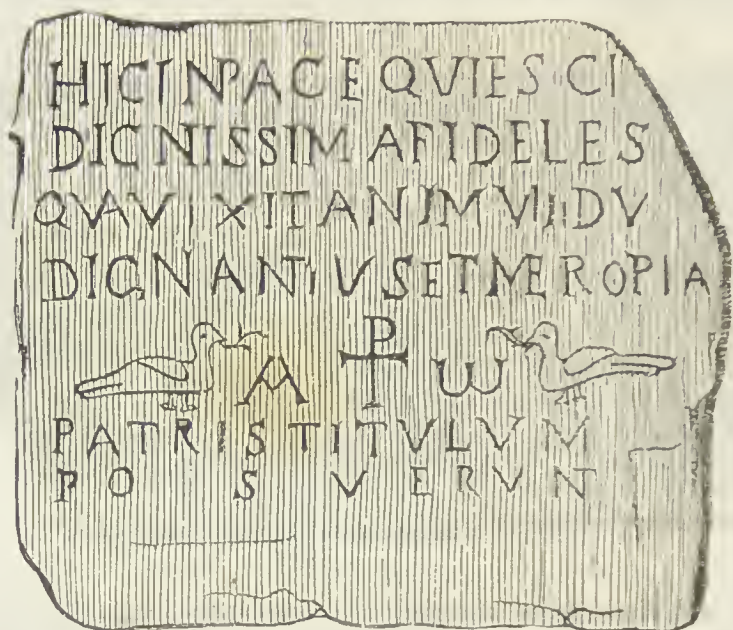 HIC IN PACE QVIESCI
DIGNISSIMA FIDELES
QVA VIXIT AN I M VII DV
DIGNANTIVS ET MEROPIA
A ⳨ ω
PATRIS TITVLVVM
POSVERVN